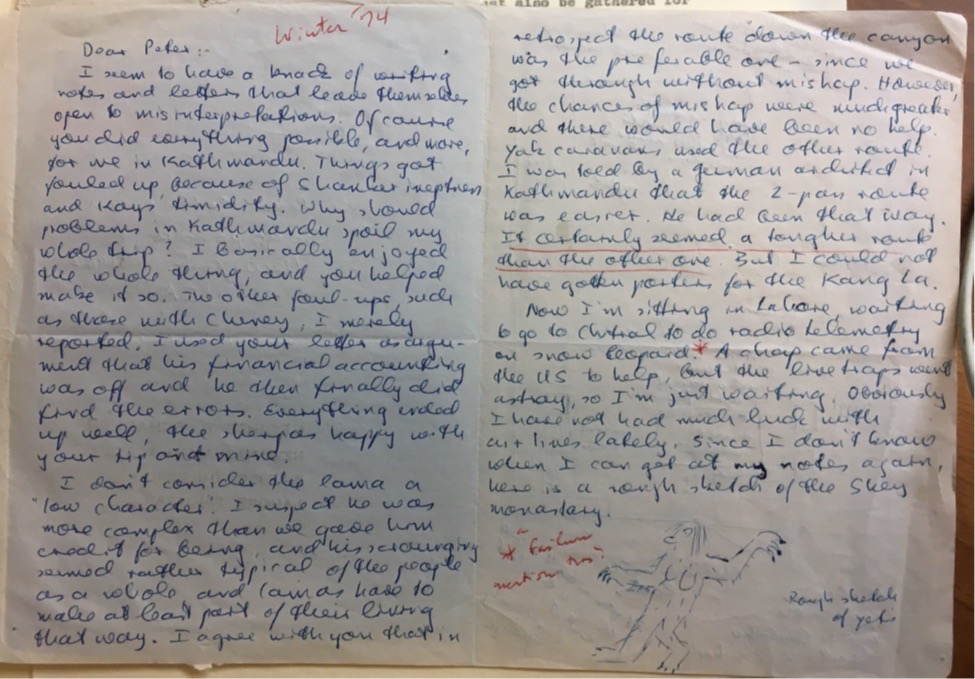 at also be gathered for
Winter '74
Dear Peter:-
I seem to have a knack of writing
notes and letters that leave themselves
open to misinterpretations. Of course
you did everything possible, and more,
for me in Kathmandu. Things got
fouled up because of Shankar ineptness
and Kays timidity. Why should
problems in Kathmandu spoil my
whole trip? I basically enjoyed
the whole thing, and you helped
make it so. The other foul-ups, such
as those with Cheney, I merely
reported. I used your letter as argu-
ment that his financial accounting
was off and he then finally did
find the errors. Everything ended
up well, the sherpas happy with
your tip and mine.
I don't consider the lama a
"low character". I suspect he was
more complex than we gave him
credit for being, and his scrounging
seemed rather typical of the people
as a whole, and lamas have to
make at least part of their living
that way. I agree with you that in
retrospect the route down the canyon
was the preferable one - since we
got through without mishap. However,
the chances of mishap were much greater
and there would have been no help.
Yak caravans used the other route.
I was told by a German in
Kathmandu that the 2-pass route
was easier. He had been that way.
It certainly seemed a tougher route
than the other one. But I could not
have gotten porters for the Kang La.
Now I'm sitting in Lahore, waiting
to go to Chitral to do radio telemetry
on snow leopard* A chap came from
the US to help, but the live traps went
astray, so I'm just waiting. Obviously
I have not had much luck with
airlines lately. Since I don't know
when I can get at my notes again,
here is a rough sketch of the Shey
monastery.
* failure
mention this
Rough sketch
of yeti